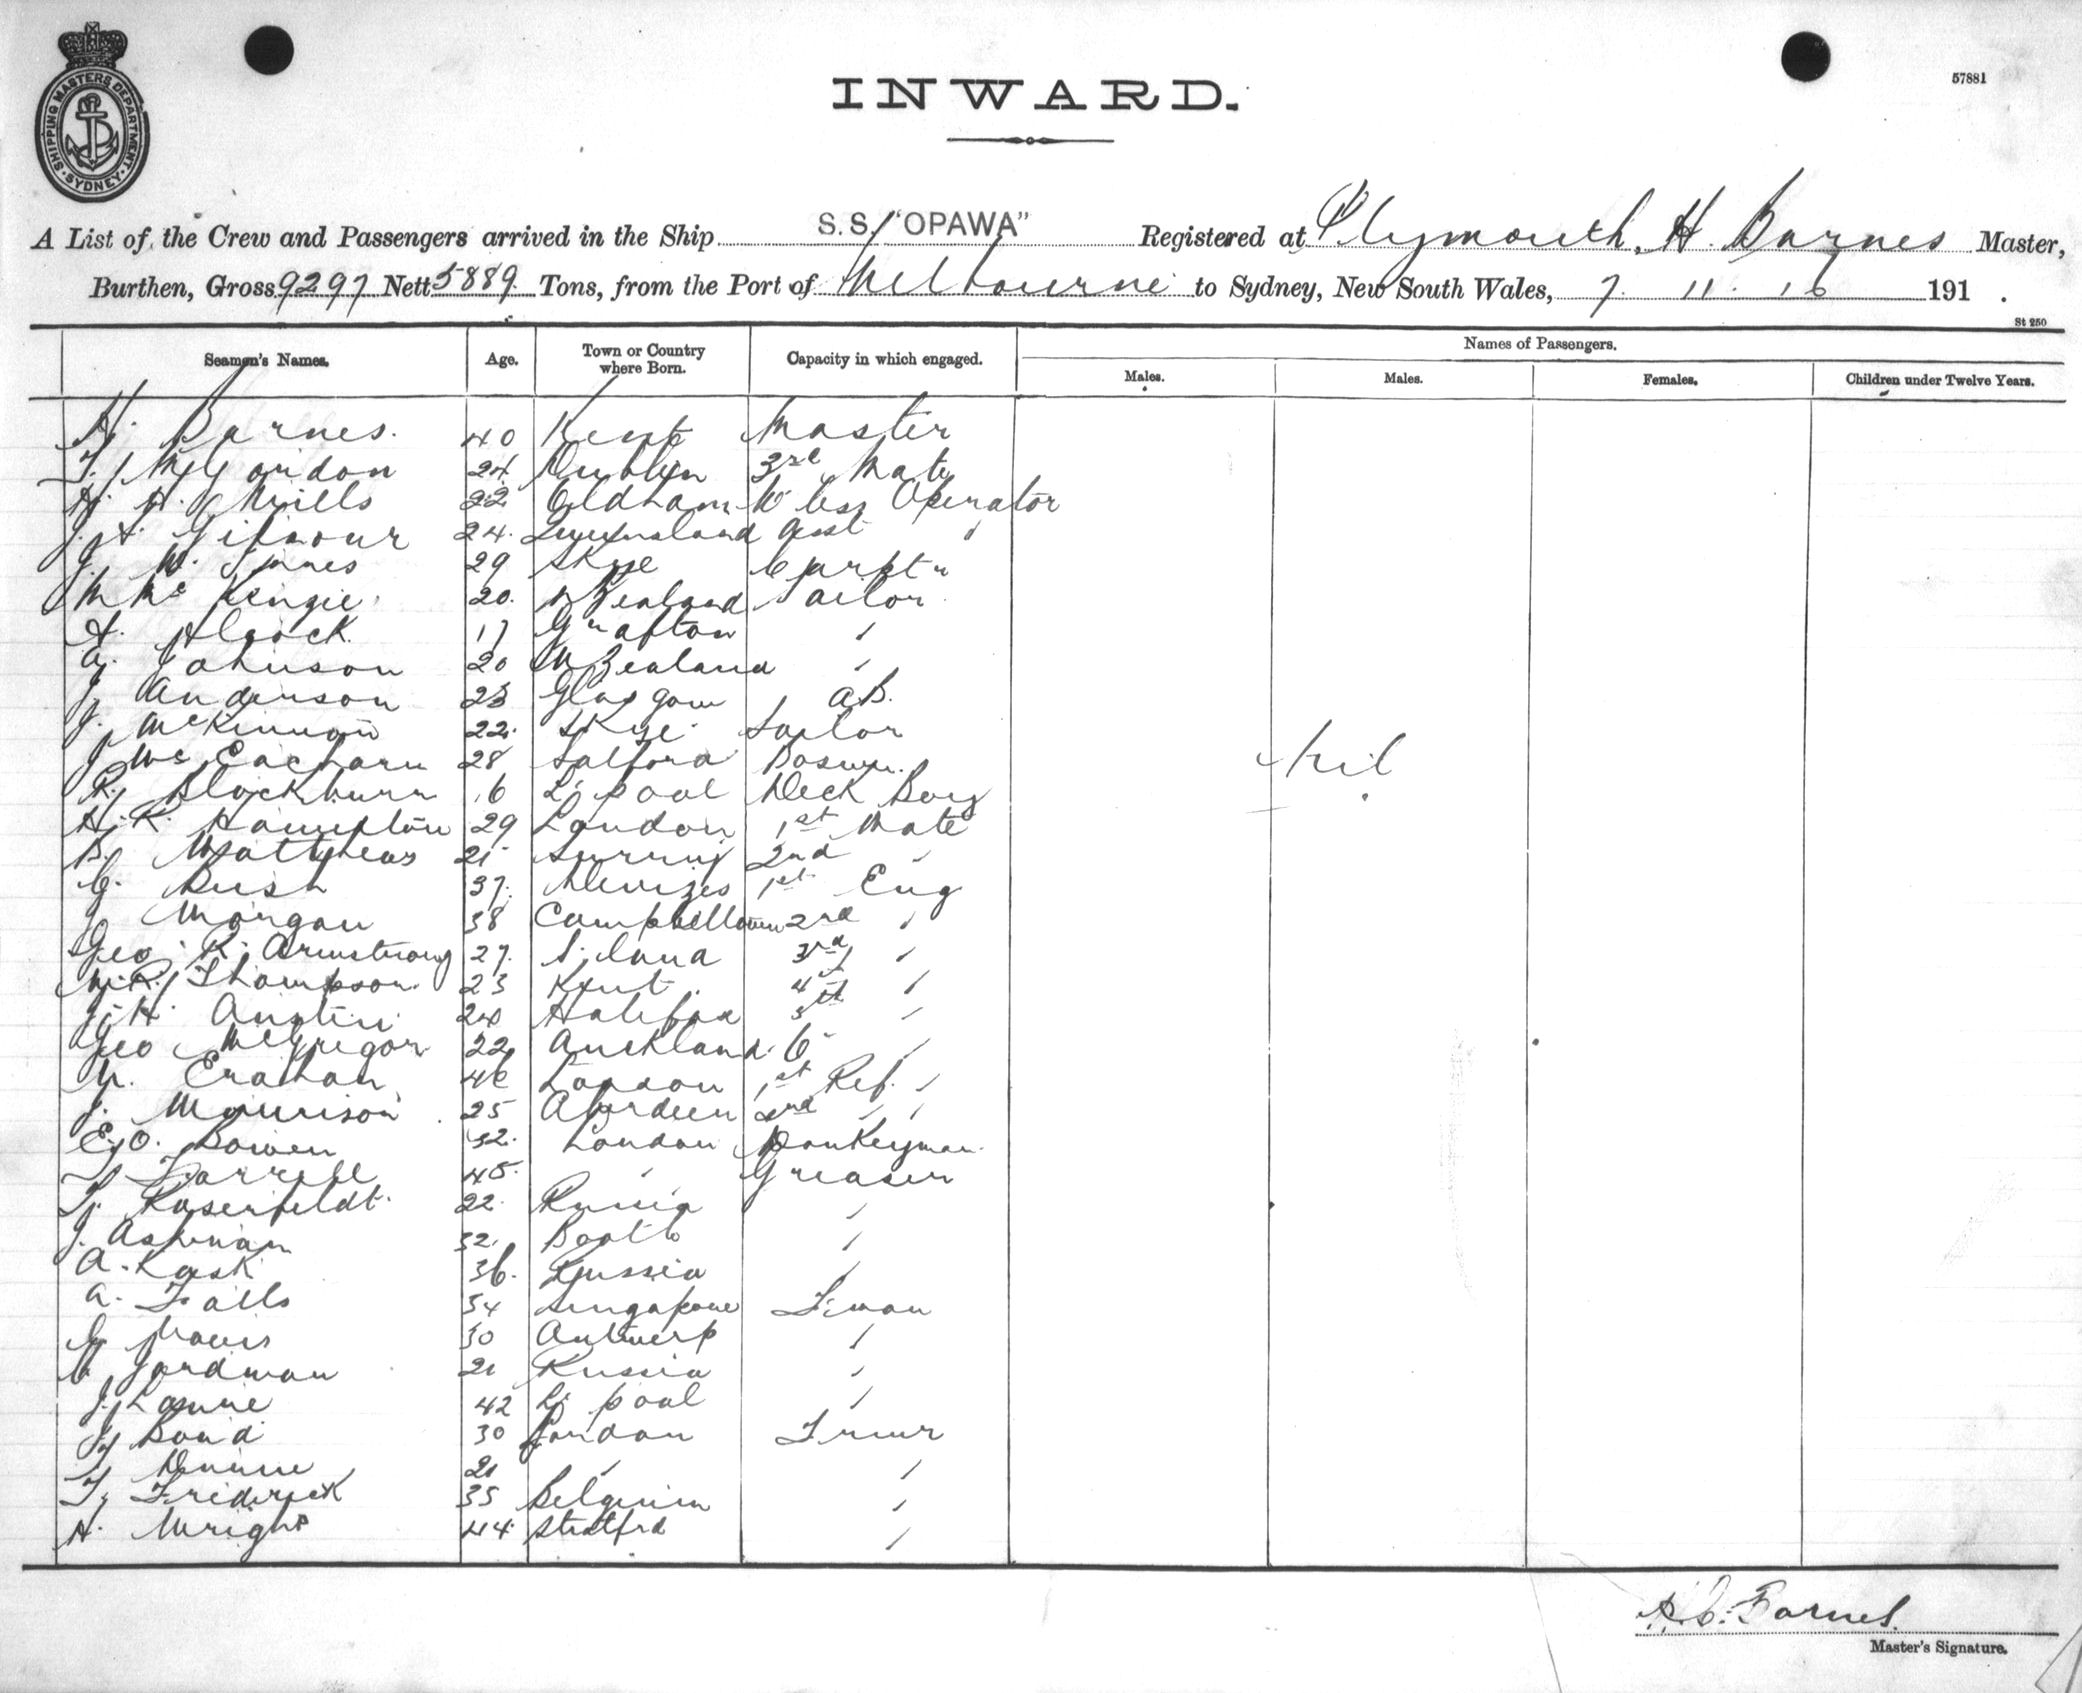 SHIPPING MASTERS DEPARTMENT
SYDNEY
57881
INWARD.
A List of the Crew and Passengers arrived in the Ship S.S. "OPAWA" Registered at Plymouth, H. Barnes Master,
Burthen, Gross 9297 Nett 5889 Tons, from the Port of Melbourne to Sydney, New South Wales, 7. 11. 16 191 .
St 250
Seamen's Names. Age. Town or Country where Born. Capacity in which engaged. Names of Passengers.
Males. Males. Females. Children under Twelve Years.
H. Barnes. 40 Kent Master
24 Dublin 3rd Mate
H. H. Mills 22 Oldham W'less Operator
J. A. Gilmour 24. Queensland Asst "
J. W. 29 Skye Carptr
M McKenzie 20. N Zealand Sailor
A. Alcock 17 Grafton "
A. Johnson 20 N Zealand "
J. Anderson 23 Glasgow A.B.
J. McKinnon 22. Skye. Sailor
J McEacharn 28 Salford Boswn. Nil
R. Blackburn 16 L'pool Deck Boy
H. R. Hampton 29 London 1st Mate
B. Matthews 21 Surrey 2nd "
G. Bush 37. Devizes 1st Eng
J Morgan 38 Campbelltown 2nd "
Geo. R. Armstrong 27. 3rd "
Thompson. 23 Kent. 4th "
J. H. Austin 24 Halifax 5th "
Geo McGregor 22 Auckland. 6 "
London 1st Ref. "
J. Morrison 25 Aberdeen 2nd " "
E. O. Bowen 32. London Donkeyman.
45. " Greaser
Rosenfeldt. 22. Russia "
J. Ashman 32. Bootle "
A. Kask 36. Russia "
A. Falls 34 Singapore F'man
30 Antwerp "
Jordman 21 Russia "
J. 42 L'pool "
Bond 30 London Trimr
Dunne 21 " "
F. Frederick 35 Belgium "
A. Wright 44. Stratfrd "
H. C. Barnes.
Master's Signature.